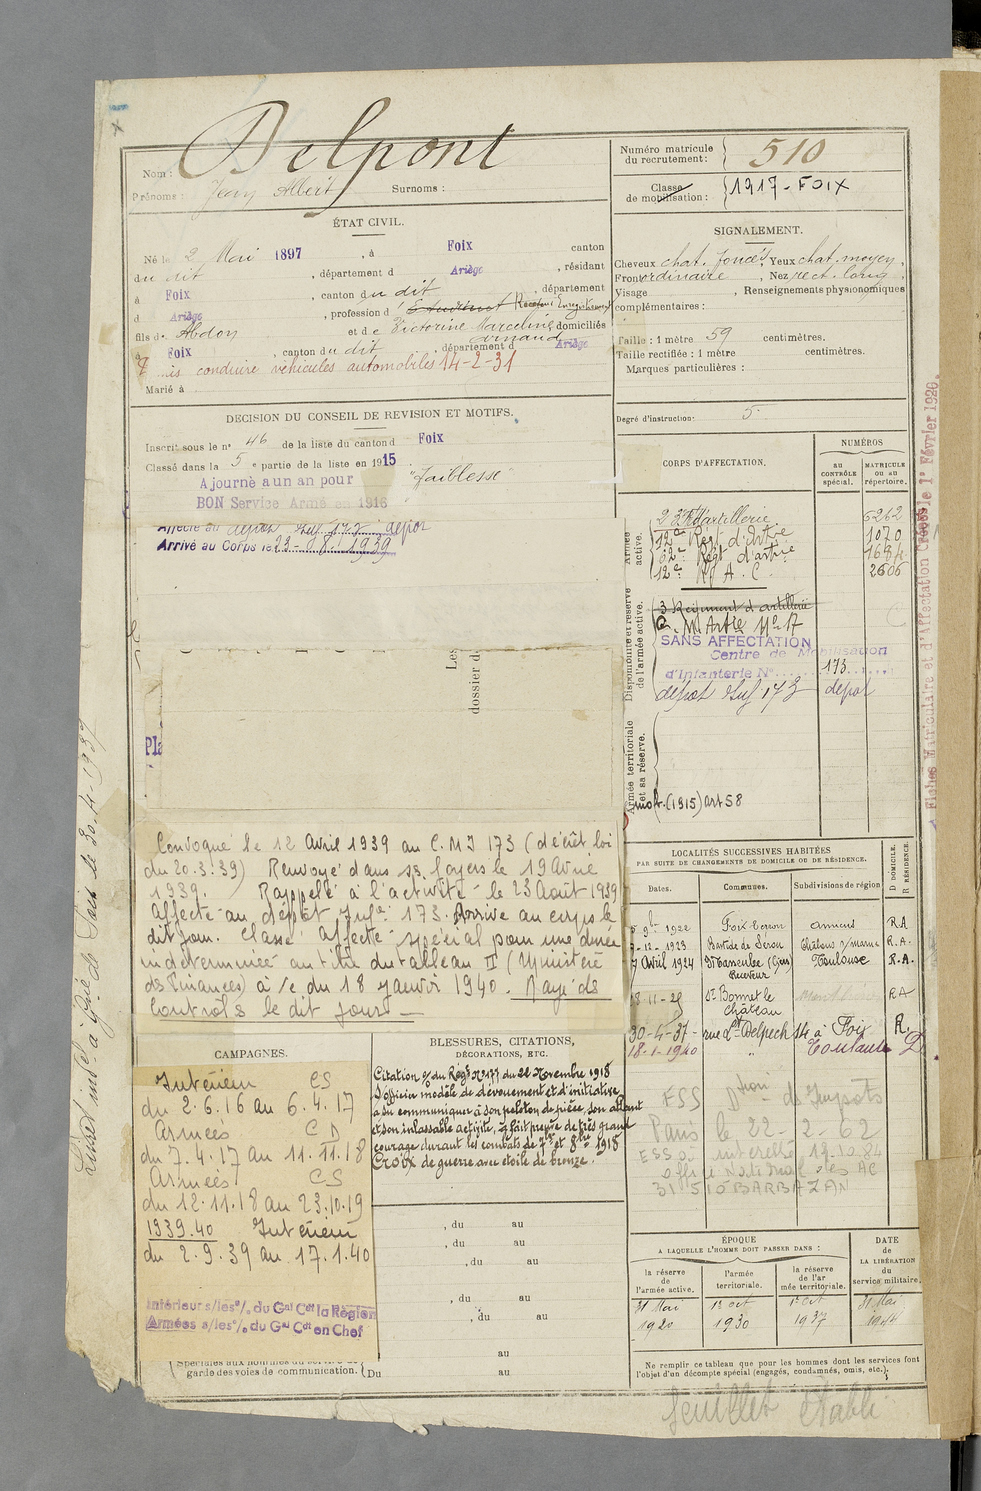 Nom : Delpont
Prénoms : Jean Albert Surnoms :
Numéro matricule du recrutement : 510
Classe de mobilisation : 1917 - FOIX
ÉTAT CIVIL.
Né le 2 Mai 1897, à Foix canton
du dit, département d Ariège, résidant
à Foix, canton du dit, département
d Ariège, profession d Etudiant Receveur Enregistrement
fils d. Abdon et de Victorine Marceline Arnaud domiciliés
Foix, canton du dit, département d Ariège
is conduire véhicules automobiles 14-2-31
Marié à
SIGNALEMENT.
Cheveux chat. foncés, Yeux chat. moyen,
Front ordinaire, Nez rect. long,
Visage , Renseignements physionomiques
complémentaires :
Taille : 1 mètre 59 centimètres.
Taille rectifiée : 1 mètre centimètres.
Marques particulières :
Degré d'instruction: 5
DECISION DU CONSEIL DE REVISION ET MOTIFS.
Inscrit sous le n° 46 de la liste du canton d Foix
Classé dans la 5e partie de la liste en 1915
Ajourné a un an pour "Faiblesse"
BON Service Armé en 1916
Affecté au dépôt Inf 173 dépôt
Arrivé au Corps le 23-8-1939
Les
dossier d
Pla
CORPS D'AFFECTATION.
NUMÉROS
AU CONTRÔLE spécial.
MATRICULE OU AU répertoire.
Armée active.
23e Rt d'artillerie 6262
12e Régt d'Artrie 1070
62e Régt d'artrie 1684
12e R A C. 2606
Disponibilité et réserve de l'armée active.
3 Régiment d'artillerie
C. M. Artle No 17
SANS AFFECTATION
Centre de Mobilisation
d'Infanterie No 173
dépôt Inf 173 dépôt
Armée territoriale et sa réserve.
mob. (1915) art 58
Fiches Matriculaire et d'Affectation Créées le 1er Février 1926.
Convoqué le 12 Avril 1939 au C.M.I 173 (décret loi
du 20.3.39) Renvoyé dans ses foyers le 19 Avril
1939. Rappelé à l'activité le 23 Août 1939
Affecté au dépôt Infie 173. Arrivé au corps le
dit jour. Classé Affecté spécial pour une durée
indéterminée au titre du tableau II (Ministère
des Finances) à/c du 18 janvier 1940. Rayé des
Contrôles le dit jour.
LOCALITÉS SUCCESSIVES HABITÉES
PAR SUITE DE CHANGEMENTS DE DOMICILE OU DE RÉSIDENCE.
Dates. Communes. Subdivisions de région D DOMICILE. R RÉSIDENCE.
1922 Amiens R.A
7-12-1923 Bastide de Sérou Châlons s/marne R.A.
7 Avril 1924 Masseube (Gers) Receveur Toulouse R.A.
18-11-29 St Bonnet le Château RA
30-4-37 - rue Lt Delpech 14 à Foix R.
18-1-1940 " Toulouse D
ESS Dtion des Impots
Paris le 22-2-62
ESS à intéressé 19.10.84
office National des AC
31510 BARBAZAN
CAMPAGNES.
Intérieur CS
du 2.6.16 au 6.4.17
Armées CD
du 7.4.17 au 11.11.18
Armées CS
du 12.11.18 au 23.10.19
1939.40 Intérieur
du 2.9.39 au 17.1.40
Intérieur s/les o/. du Gal Cdt la Région
Armées s/les o/. du Gal Cdt en Chef
Spéciales aux hommes du service de
garde des voies de communication. (Du au
BLESSURES, CITATIONS,
DÉCORATIONS, ETC.
Citation o/ du Régt No 177 du 22 Novembre 1918
"Officier modèle de dévouement et d'initiative
a su communiquer à son peloton de pièce, son allant
et son inlassable activité, a fait preuve de très grand
courage durant les combats de 7bre et 8bre 1918
Croix de guerre avec étoile de bronze.
, du au
, du au
, du au
, du au
, du au
au
ÉPOQUE
A LAQUELLE L'HOMME DOIT PASSER DANS :
DATE de LA LIBÉRATION du service militaire.
la réserve de l'armée active.
l'armée territoriale.
la réserve de l'armée territoriale.
31 Mai 1920
1er oct 1930
1er oct 1937
31 Mai 1944
Ne remplir ce tableau que pour les hommes dont les services font
l'objet d'un décompte spécial (engagés, condamnés, omis, etc.).
feuillet établi